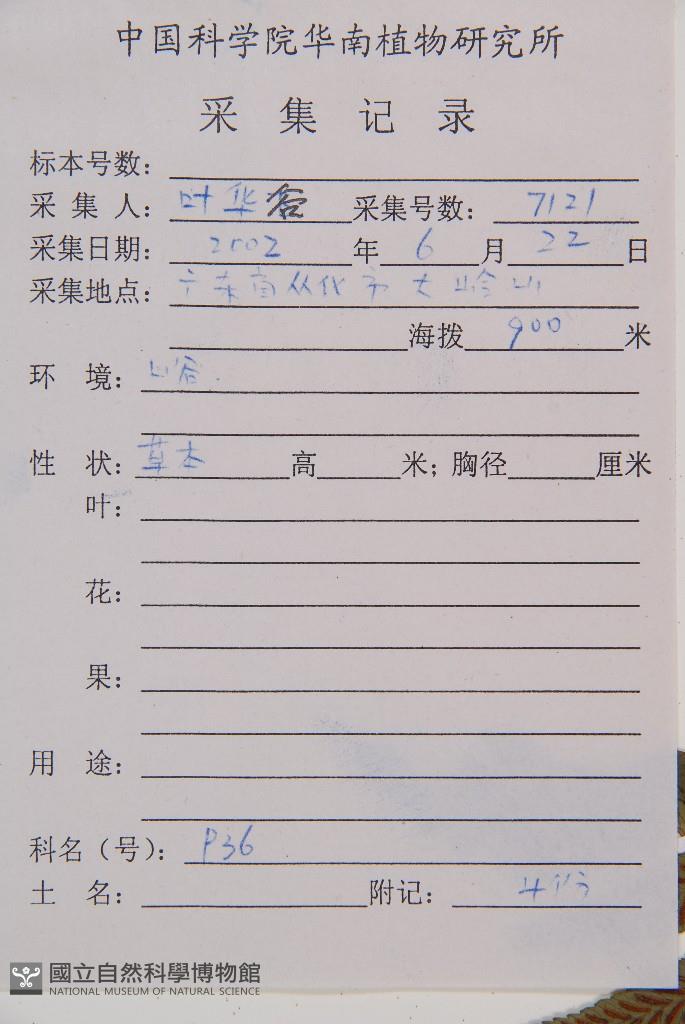 中国科学院华南植物研究所
采集记录
标本号数：
采集人：叶华谷 采集号数：7121
采集日期：2002年6月22日
采集地点：广东省从化市大岭山
海拨900米
环境：山谷
性状：草本 高 米；胸径 厘米
叶：
花：
果：
用途：
科名（号）：P36
土名： 附记：4份
國立自然科學博物館
NATIONAL MUSEUM OF NATURAL SCIENCE